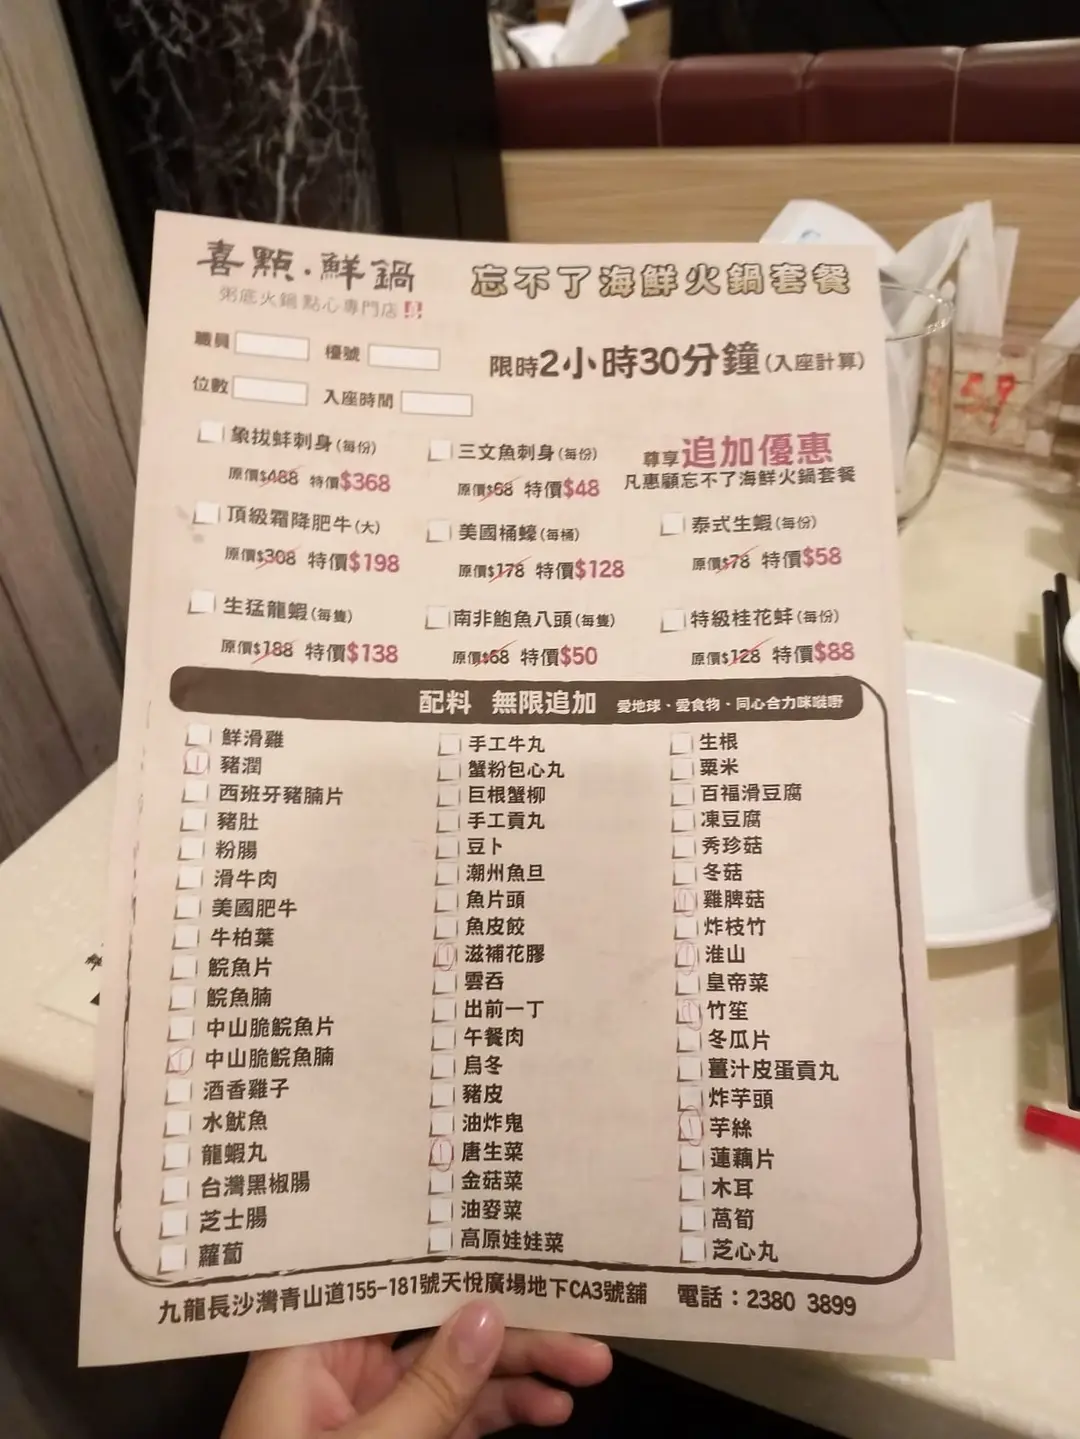 喜點．鮮鍋
粥底火鍋點心專門店
忘不了海鮮火鍋套餐
職員
檯號
限時2小時30分鐘(入座計算)
位數
入座時間
象拔蚌刺身(每份)
原價$488 特價$368
三文魚刺身(每份)
原價$68 特價$48
尊享追加優惠
凡惠顧忘不了海鮮火鍋套餐
頂級霜降肥牛(大)
原價$308 特價$198
美國桶蠔(每桶)
原價$178 特價$128
泰式生蝦(每份)
原價$78 特價$58
生猛龍蝦(每隻)
原價$188 特價$138
南非鮑魚八頭(每隻)
原價$68 特價$50
特級桂花蚌(每份)
原價$128 特價$88
配料 無限追加 愛地球．愛食物．同心合力咪嘥嘢
鮮滑雞
豬潤
西班牙豬腩片
豬肚
粉腸
滑牛肉
美國肥牛
牛柏葉
鯇魚片
鯇魚腩
中山脆鯇魚片
中山脆鯇魚腩
酒香雞子
水魷魚
龍蝦丸
台灣黑椒腸
芝士腸
蘿蔔
手工牛丸
蟹粉包心丸
巨根蟹柳
手工貢丸
豆卜
潮州魚旦
魚片頭
魚皮餃
滋補花膠
雲吞
出前一丁
午餐肉
烏冬
豬皮
油炸鬼
唐生菜
金菇菜
油麥菜
高原娃娃菜
生根
粟米
百福滑豆腐
凍豆腐
秀珍菇
冬菇
雞脾菇
炸枝竹
淮山
皇帝菜
竹笙
冬瓜片
薑汁皮蛋貢丸
炸芋頭
芋絲
蓮藕片
木耳
萵筍
芝心丸
九龍長沙灣青山道155-181號天悅廣場地下CA3號舖 電話：2380 3899